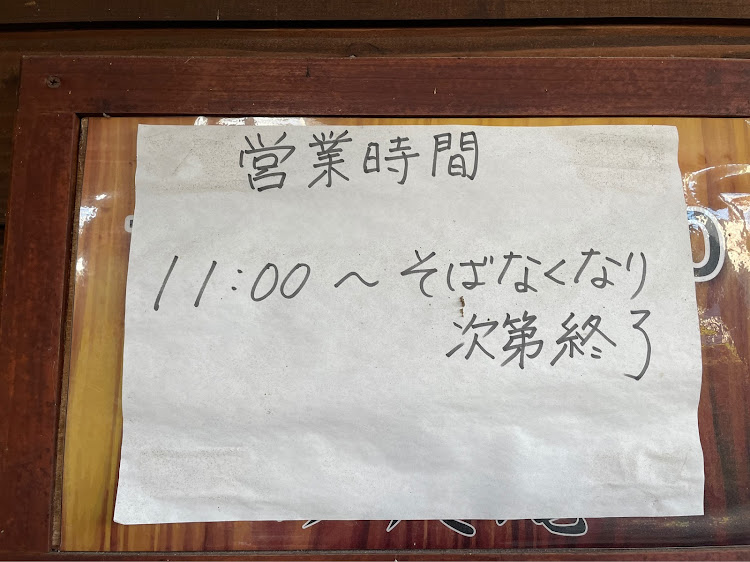 営業時間
11:00〜そばなくなり
次第終了